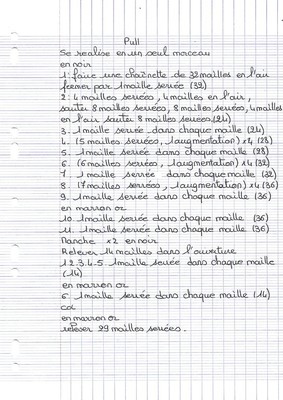 Pull
Se realise en un seul morceau
en noir
1: faire une chaînette de 32 mailles en l'air
fermer par 1 maille serrée (32)
2: 4 mailles serrées, 4 mailles en l'air,
sauter 8 mailles serrées, 8 mailles serrées, 4 mailles
en l'air sauter 8 mailles serrées (24)
3. 1 maille serrée dans chaque maille (24)
4. (5 mailles serrées, 1 augmentation) x4 (28)
5. 1 maille serrée dans chaque maille (28)
6. (6 mailles serrées, 1 augmentation) x4 (32)
7. 1 maille serrée dans chaque maille (32)
8. (7 mailles serrées, 1 augmentation) x4 (36)
9. 1 maille serrée dans chaque maille (36)
en marron or
10. 1 maille serrée dans chaque maille (36)
11. 1 maille serrée dans chaque maille (36)
Manche x2 en noir
Relever 14 mailles dans l'ouverture
1.2.3.4.5. 1 maille serrée dans chaque maille
(14)
en marron or
6. 1 maille serrée dans chaque maille (14)
col
en marron or
relever 29 mailles serrées.